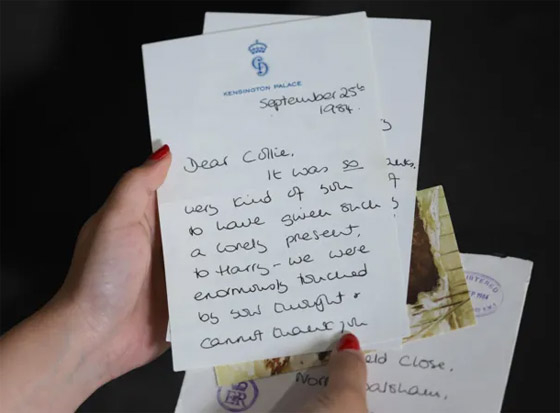 KENSINGTON PALACE
September 25th
1984.
Dear Collie,
It was so
very kind of you
to have given such
a lovely present,
to Harry - we were
enormously touched
by your thought &
cannot thank you
ld Close,
Walsham,